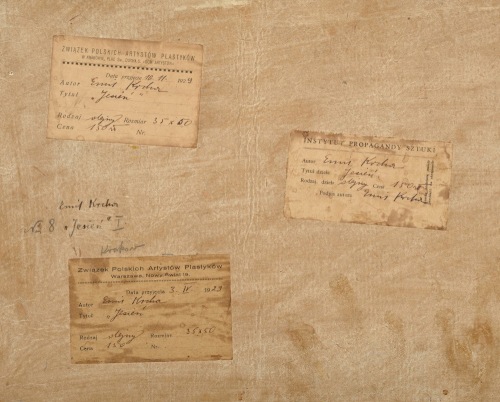 ZWIĄZEK POLSKICH ARTYSTÓW PLASTYKÓW
Data przyjęcia 10. II. 1929
Autor Emil Krcha
Tytuł „Jesień"
Rodzaj olejny Rozmiar 35 x 50
Cena 150 zł Nr.
INSTYTUT PROPAGANDY SZTUKI
Autor Emil Krcha
Tytuł dzieła „Jesień"
Rodzaj dzieła olejny Cena 150
Podpis autora Emil Krcha
Emil Krcha
8 „Jesień" I
Kraków
Związek Polskich Artystów Plastyków
Warszawa, Nowy-Świat 19.
Data przyjęcia 3. IV 1929
Autor Emil Krcha
Tytuł „Jesień
Rodzaj olejny Rozmiar 35x50
Cena 150 Nr.